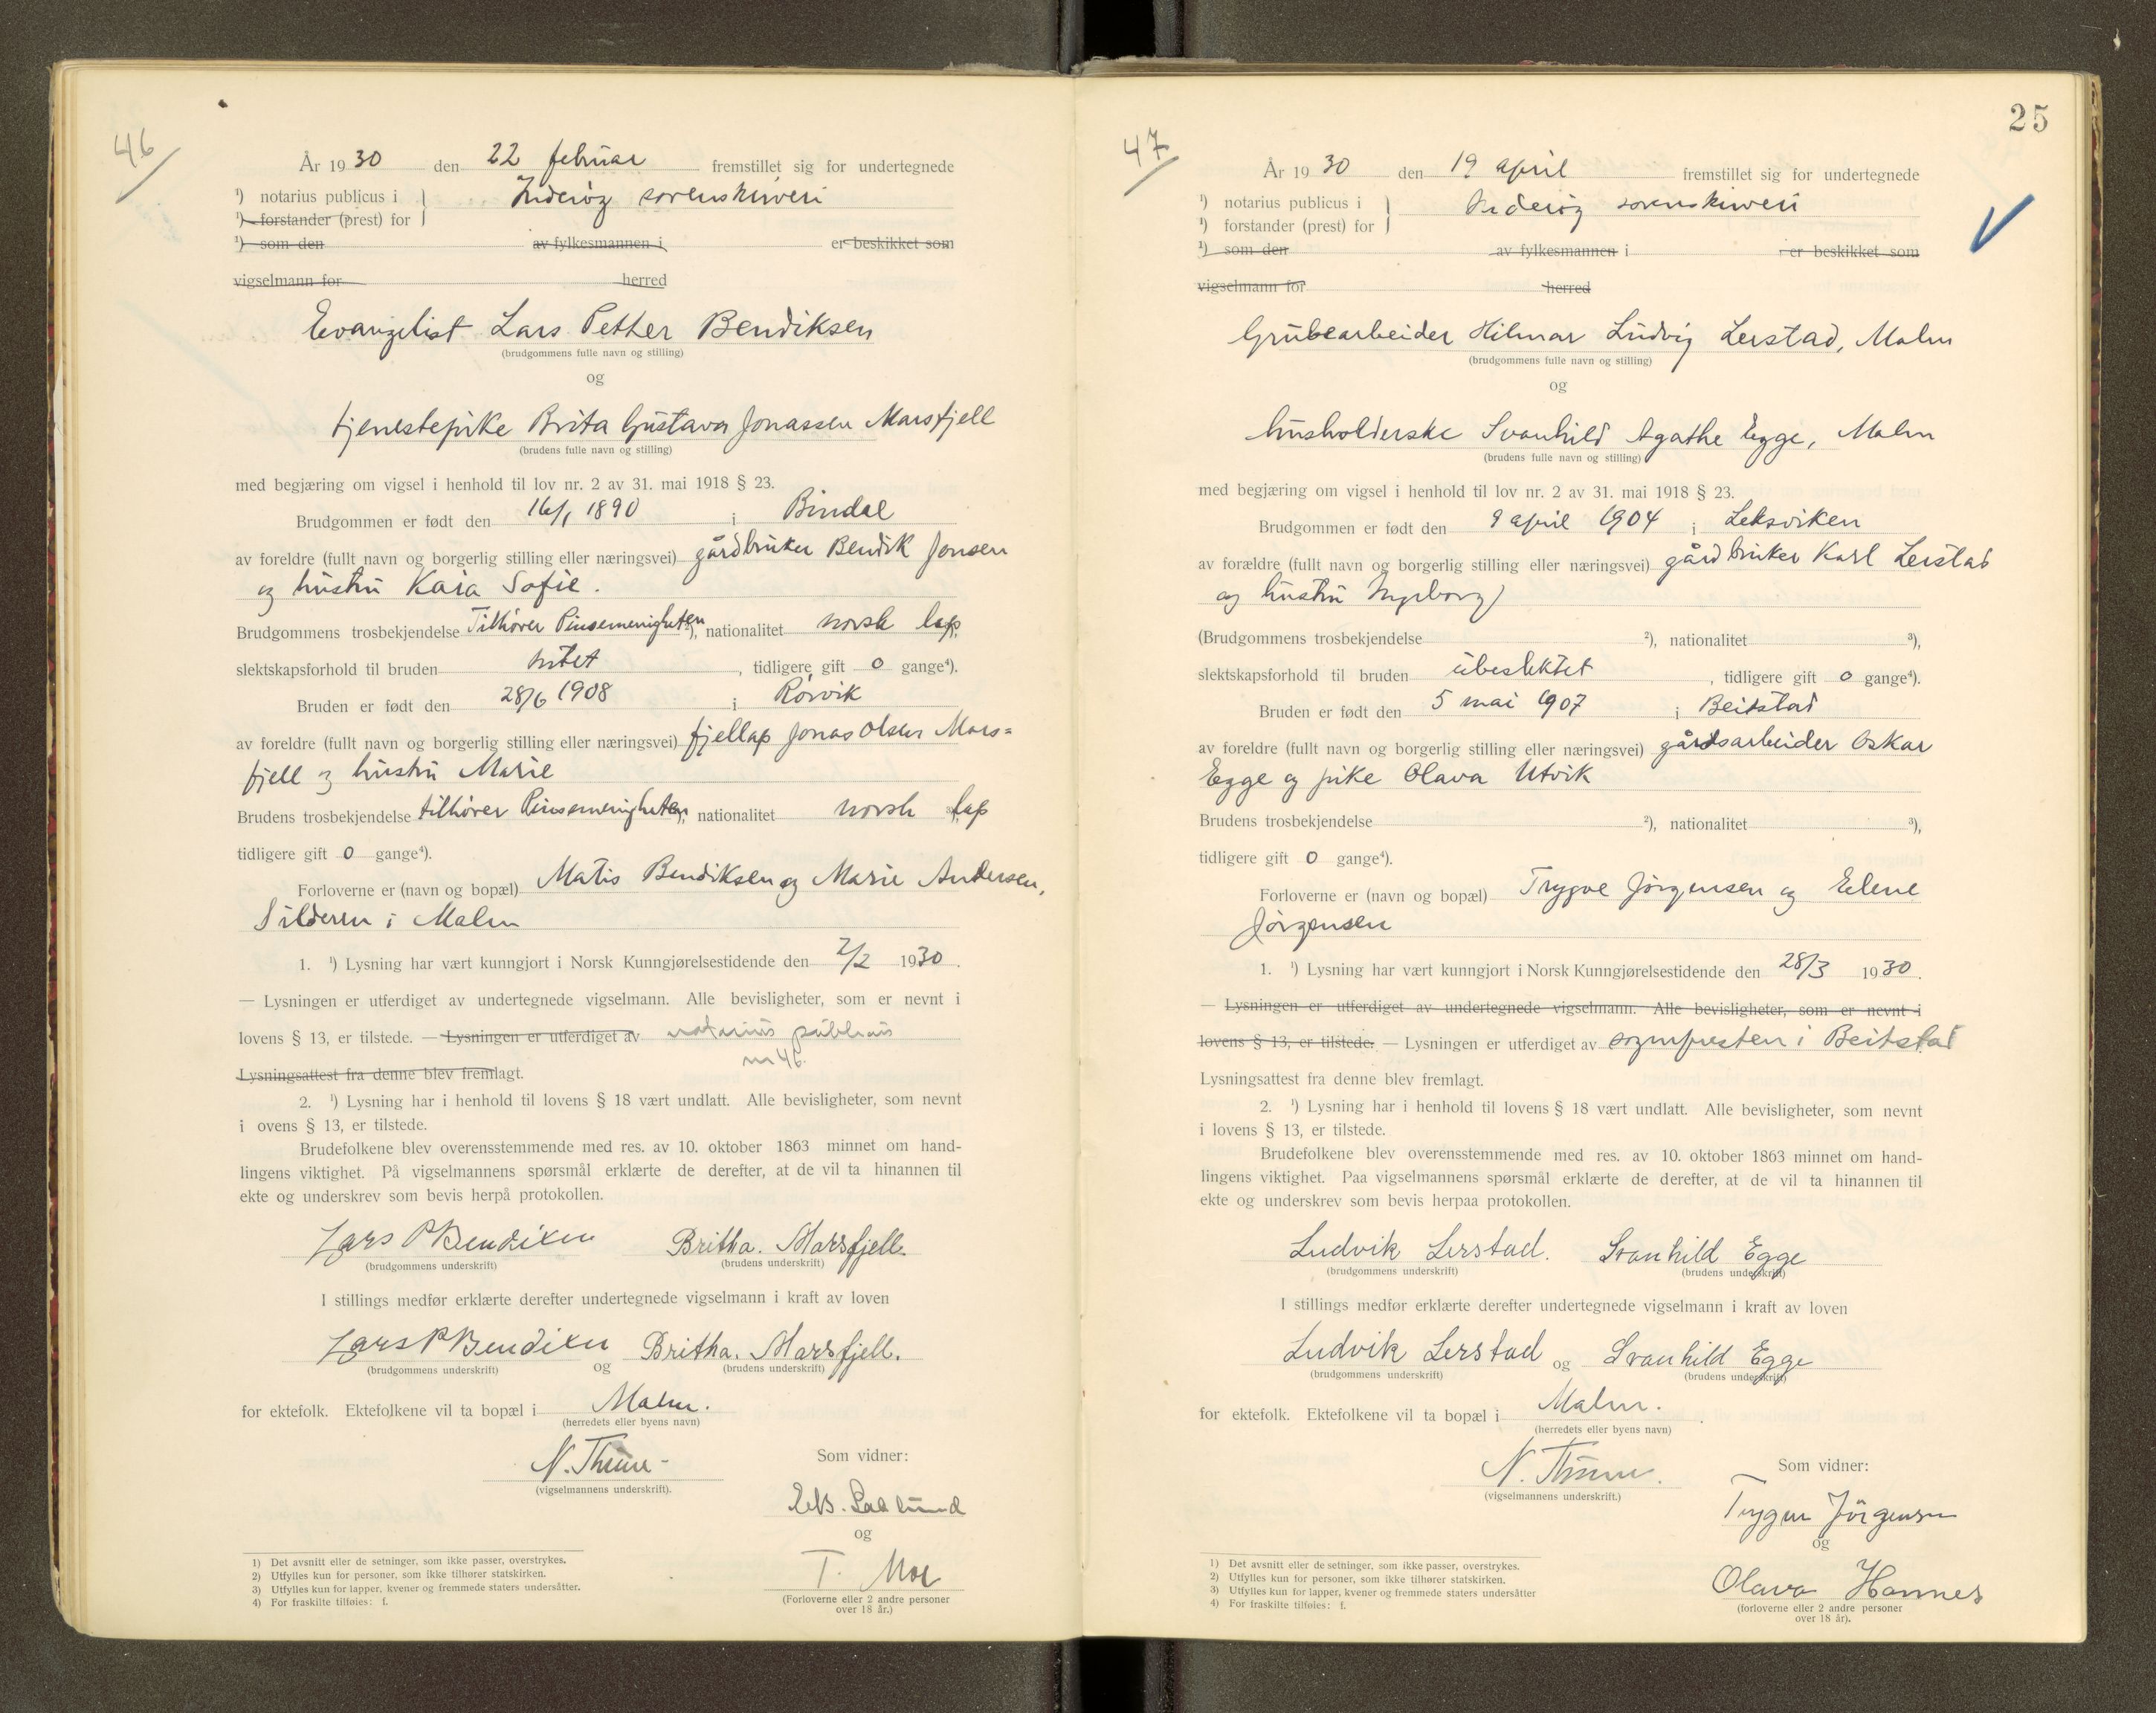 46
År 1930 den 22 februar fremstillet sig for undertegnede
¹) notarius publicus i
Inderøy sorenskriveri
¹) forstander (prest) for
¹) som den av fylkesmannen i er beskikket som
vigselmann for herred
Evangelist Lars Petter Bendiksen
(brudgommens fulle navn og stilling)
og
tjenestepike Brita Gustava Jonassen Marsfjell
(brudens fulle navn og stilling)
med begjæring om vigsel i henhold til lov nr. 2 av 31. mai 1918 § 23.
Brudgommen er født den 16/1 1890 i Bindal
av foreldre (fullt navn og borgerlig stilling eller næringsvei) gårdbruker Bendik Jonsen
og hustru Kaia Sofie.
Brudgommens trosbekjendelse Tilhører Pinsemenigheten ²), nationalitet norsk lap ³),
slektskapsforhold til bruden intet, tidligere gift 0 gange⁴).
Bruden er født den 28/6 1908 i Rørvik
av foreldre (fullt navn og borgerlig stilling eller næringsvei) fjellap Jonas Olsen Mars=
fjell og hustru Marie
Brudens trosbekjendelse tilhører Pinsemenigheten ²), nationalitet norsk lap ³),
tidligere gift 0 gange⁴).
Forloverne er (navn og bopæl) Matis Bendiksen og Marie Andersen,
Silderen i Malm
1. ¹) Lysning har vært kunngjort i Norsk Kunngjørelsestidende den 7/2 1930.
— Lysningen er utferdiget av undertegnede vigselmann. Alle bevisligheter, som er nevnt i
lovens § 13, er tilstede. — Lysningen er utferdiget av notarius publicus
nr 46.
Lysningsattest fra denne blev fremlagt.
2. ¹) Lysning har i henhold til lovens § 18 vært undlatt. Alle bevisligheter, som nevnt
i ovens § 13, er tilstede.
Brudefolkene blev overensstemmende med res. av 10. oktober 1863 minnet om hand-
lingens viktighet. På vigselmannens spørsmål erklærte de derefter, at de vil ta hinannen til
ekte og underskrev som bevis herpå protokollen.
Lars P Bendixen Britha. Marsfjell.
(brudgommens underskrift) (brudens underskrift)
I stillings medfør erklærte derefter undertegnede vigselmann i kraft av loven
Lars P Bendixen og Britha. Marsfjell.
(brudgommens underskrift) (brudens underskrift)
for ektefolk. Ektefolkene vil ta bopæl i Malm.
(herredets eller byens navn)
N. Thune
(vigselmannens underskrift).
Som vidner:
og
T. Moe
(Forloverne eller 2 andre personer
over 18 år.)
1) Det avsnitt eller de setninger, som ikke passer, overstrykes.
2) Utfylles kun for personer, som ikke tilhører statskirken.
3) Utfylles kun for lapper, kvener og fremmede staters undersåtter.
4) For fraskilte tilføies: f.
25
47
År 1930 den 19 april fremstillet sig for undertegnede
¹) notarius publicus i
Inderøy sorenskriveri
¹) forstander (prest) for
¹) som den av fylkesmannen i er beskikket som
vigselmann for herred
Grubearbeider Hilmar Ludvig Lerstad, Malm
(brudgommens fulle navn og stilling)
og
husholderske Svanhild Agathe Egge, Malm
(brudens fulle navn og stilling)
med begjæring om vigsel i henhold til lov nr. 2 av 31. mai 1918 § 23.
Brudgommen er født den 9 april 1904 i Leksviken
av forældre (fullt navn og borgerlig stilling eller næringsvei) gårdbruker Karl Lerstad
og hustru Ingeborg
(Brudgommens trosbekjendelse ²), nationalitet ³),
slektskapsforhold til bruden ubeslektet, tidligere gift 0 gange⁴).
Bruden er født den 5 mai 1907 i Beitstad
av foreldre (fullt navn og borgerlig stilling eller næringsvei) gårdsarbeider Oskar
Egge og pike Olava Utvik
Brudens trosbekjendelse ²), nationalitet ³),
tidligere gift 0 gange⁴).
Forloverne er (navn og bopæl) Trygve Jørgensen og Elene
Jørgensen
1. ¹) Lysning har vært kunngjort i Norsk Kunngjørelsestidende den 28/3 1930.
— Lysningen er utferdiget av undertegnede vigselmann. Alle bevisligheter, som er nevnt i
lovens § 13, er tilstede. — Lysningen er utferdiget av sognpresten i Beitstad
Lysningsattest fra denne blev fremlagt.
2. ¹) Lysning har i henhold til lovens § 18 vært undlatt. Alle bevisligheter, som nevnt
i lovens § 13, er tilstede.
Brudefolkene blev overensstemmende med res. av 10. oktober 1863 minnet om hand-
lingens viktighet. Paa vigselmannens spørsmål erklærte de derefter, at de vil ta hinannen til
ekte og underskrev som bevis herpaa protokollen.
Ludvik Lerstad. Svanhild Egge
(brudgommens underskrift) (brudens underskrift)
I stillings medfør erklærte derefter undertegnede vigselmann i kraft av loven
Ludvik Lerstad og Svanhild Egge
(brudgommens underskrift) (brudens underskrift)
for ektefolk. Ektefolkene vil ta bopæl i Malm.
(herredets eller byens navn)
N. Thune.
(vigselmannens underskrift.)
Som vidner:
Trygve Jørgensen
og
Olava Hannes
(forloverne eller 2 andre personer
over 18 år).
1) Det avsnitt eller de setninger, som ikke passer, overstrykes.
2) Utfylles kun for personer, som ikke tilhører statskirken.
3) Utfylles kun for lapper, kvener og fremmede staters undersåtter
4) For fraskilte tilføies: f.